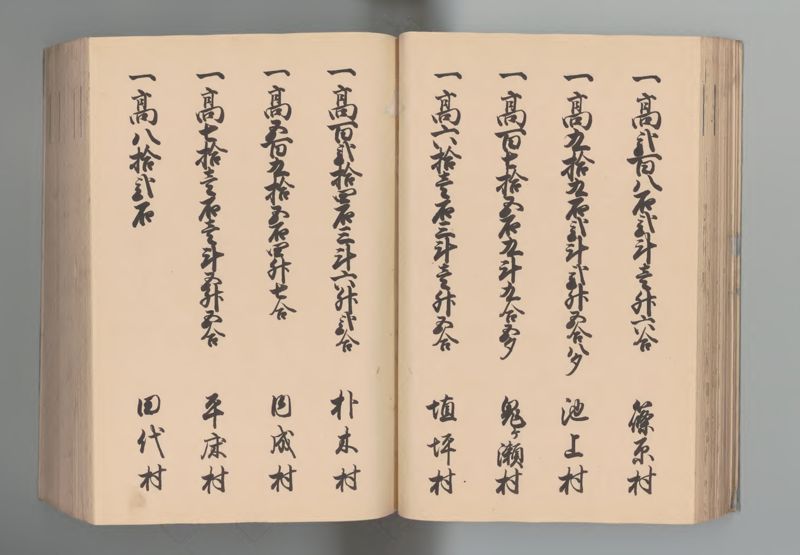 一高弐百八石弐斗壱升六合 篠原村
一高九拾九石弐斗弐升五合八夕 池上村
一高百七拾五石九斗九合五夕 鬼ヶ瀬村
一高六拾壱石三斗壱升五合 埴坪村
一高百弐拾四石三斗六升弐合 朴木村
一高五百九拾五石四升七合 円成村
一高七拾壱石壱斗五升五合 平床村
一高八拾弐石 田代村